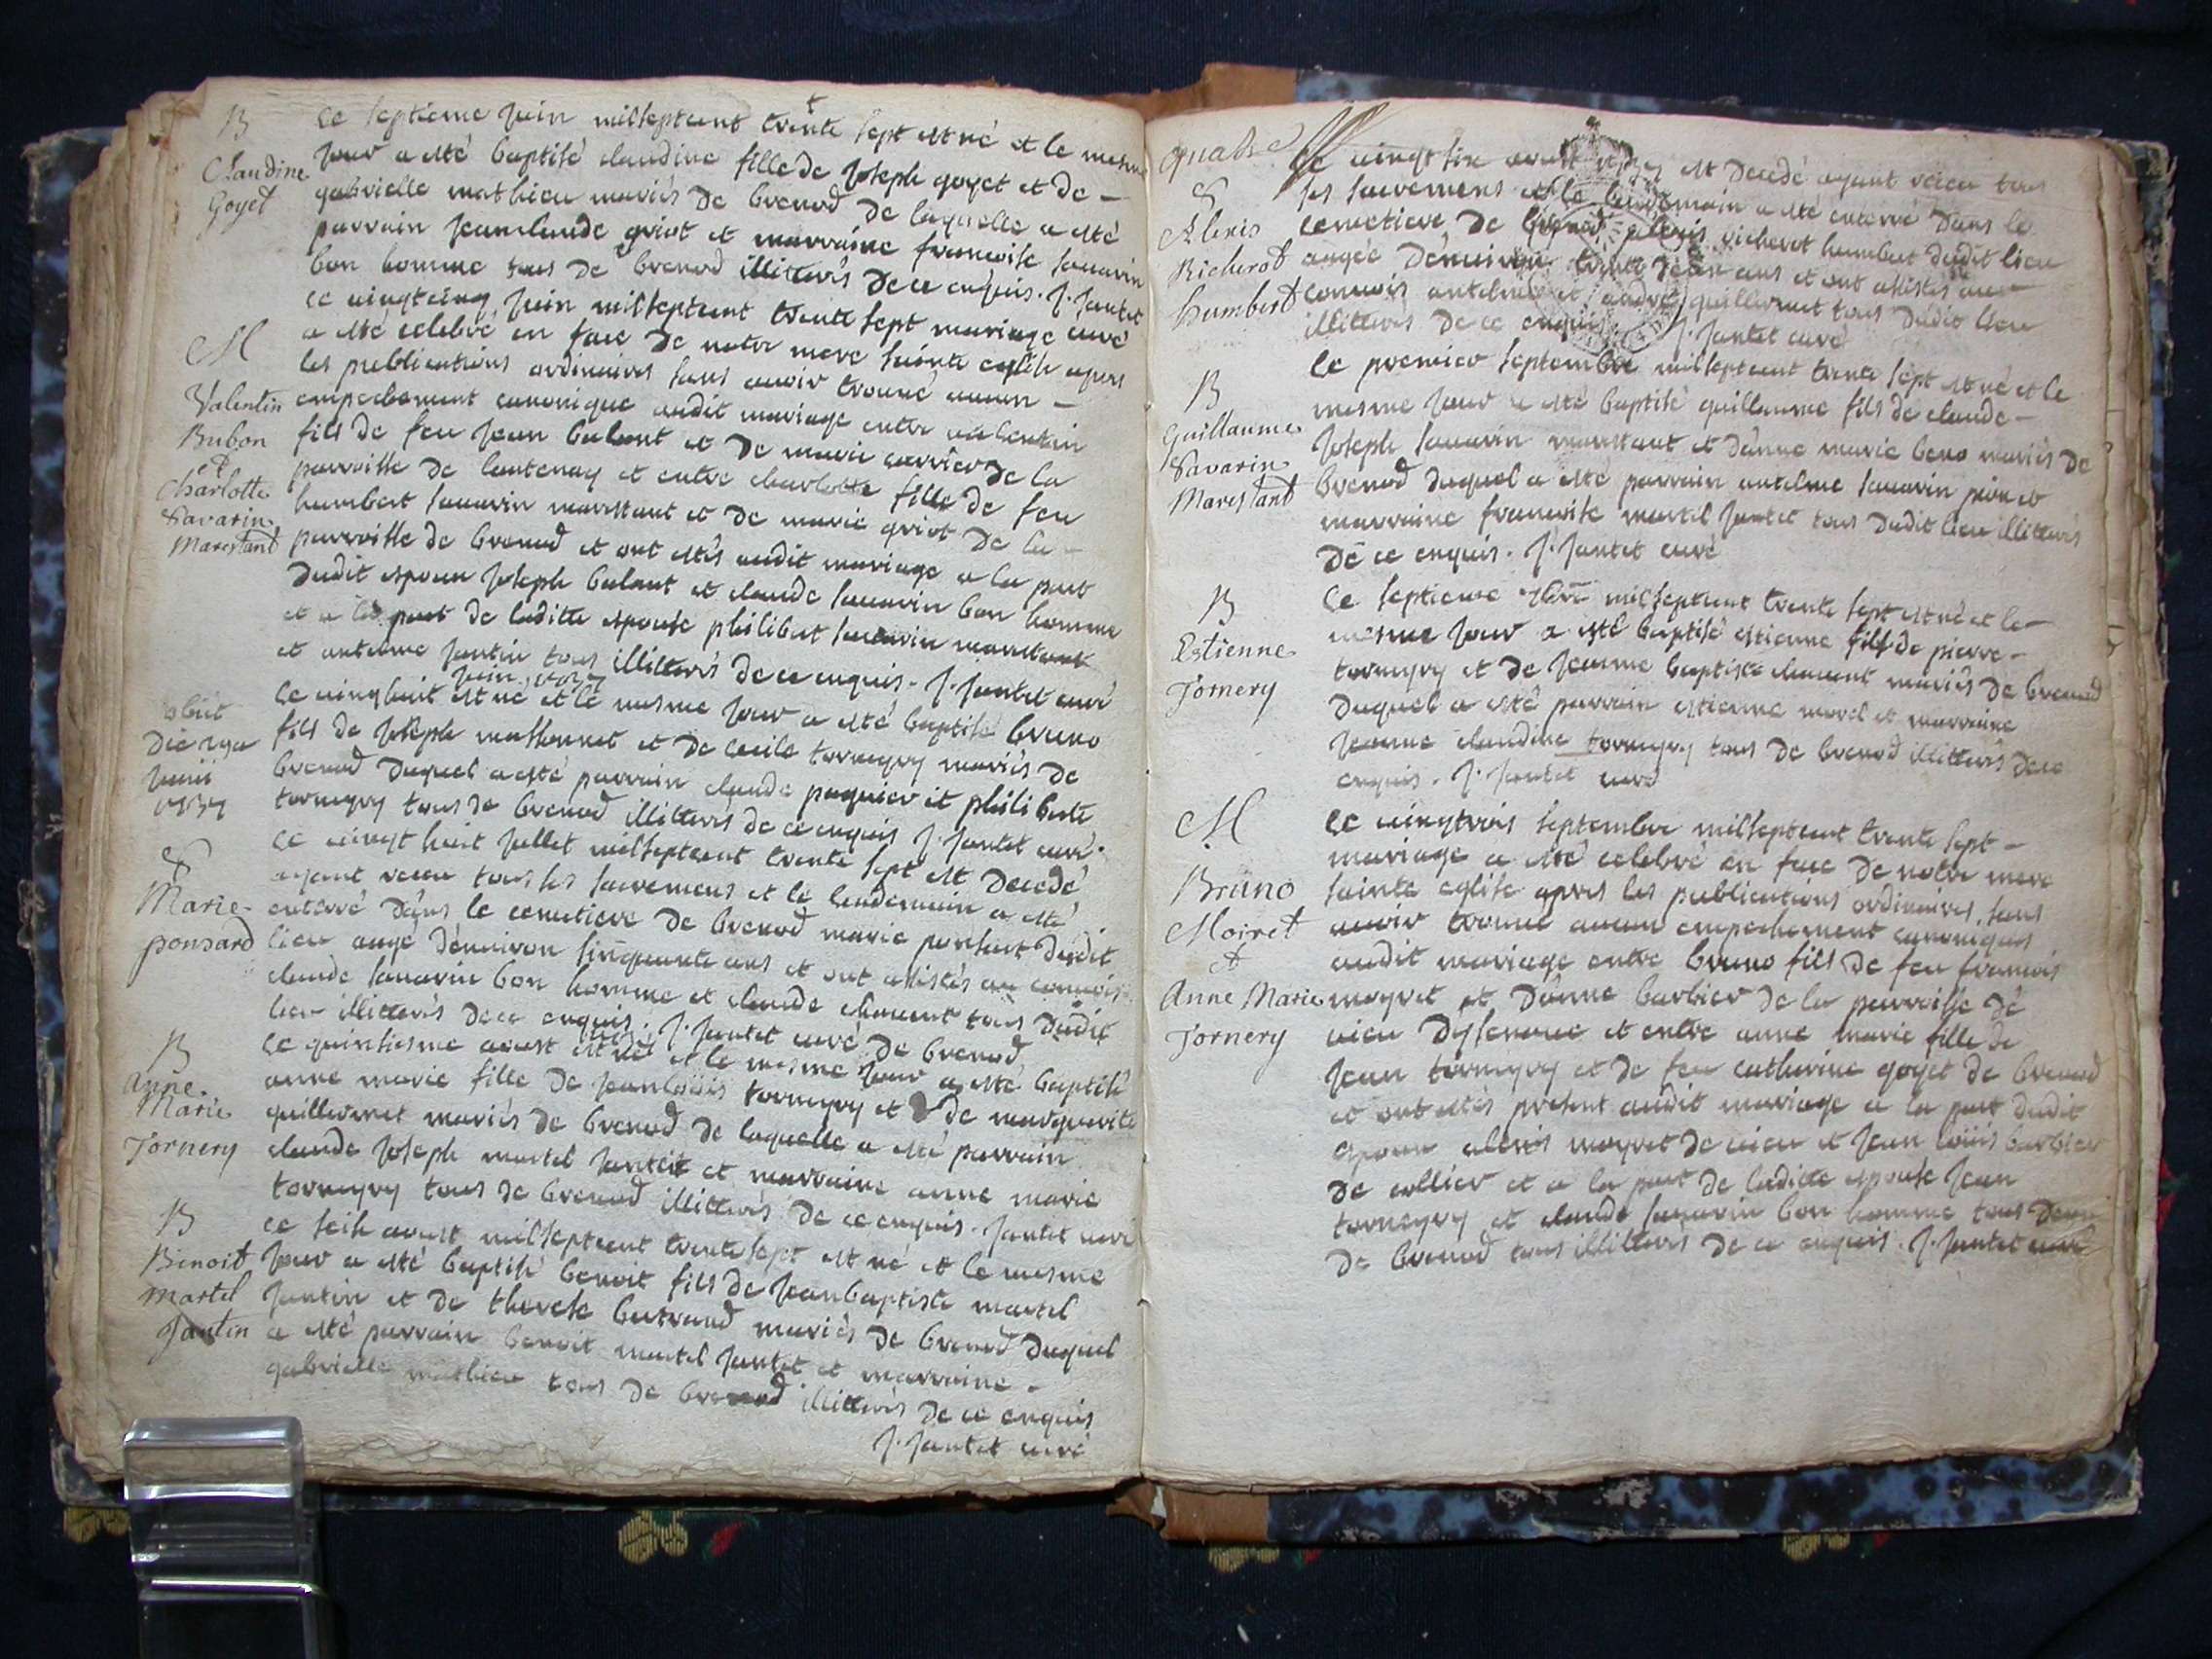 B
Claudine
Goyet
Le septieme juin milseptcent trente sept est né et le mesme
jour a esté baptisé claudine fille de joseph goyet et de
gabrielle mathieu mariés de brenod de laquelle a esté
parrain jeanclaude griot et marraine francoise savarin
bon homme tous de brenod illitterés de ce enquis. J. Jantet
curé
M
Valentin
Bubon
et
Charlotte
Savarin
Marestant
Le vingtcinq juin milseptcent trente sept mariage
a esté celebré en face de notre mere sainte eglise apres
les publications ordinaires sans avoir trouvé aucun
empechement canonique audit mariage entre valentin
fils de feu jean balant et de marie carrier de la
parroisse de lantenay et entre charlotte fille de feu
humbert savarin marestant et de marie griot de la
parroisse de brenod et ont estés audit mariage a la part
dudit epoux joseph balant et claude savarin bon homme
et a la part de laditte epouse philibert savarin marestant
et antelme jantin tous illitterés de ce enquis. J. Jantet curé
obiit
die 29a
junii
1737
juin 1737
Le vingthuit est né et le mesme jour a esté baptisé bruno
fils de joseph massonnet et de cecile torneyry mariés de
brenod duquel a esté parrain claude paquier et philiberte
torneyry tous de brenod illitterés de ce enquis J. Jantet curé.
S
Marie
ponsard
Le vingt huit juillet milseptcent trente sept est decedé
ayant receu tous les sacremens et le lendemain a esté
enterré dans le cemetiere de brenod marie ponsart dudit
lieu augé d'environ sinquante ans et ont assistés au convois
claude savarin bon homme et claude chavent tous dudit
lieu illitterés de ce enquis. J. Jantet curé de brenod
B
Anne
Marie
Tornery
1737
Le quinsiesme aoust est née et le mesme jour a esté baptisé
anne marie fille de jeanloüis torneyry et de marguerite
guillermet mariés de brenod de laquelle a esté parrain
claude joseph martel jantet et marraine anne marie
torneyry tous de brenod illitterés de ce enquis. Jantet curé
B
Benoit
martel
Jantin
Le seise aoust milseptcent trente sept est né et le mesme
jour a esté baptisé benoit fils de jeanbaptiste martel
jantin et de therese bertrand mariés de brenod duquel
a esté parrain benoit martel jantet et marraine
gabrielle mathieu tous de brenod illitterés de ce enquis
J. Jantet curé
quatre
S
Alexis
Richerot
humbert
Le vingt six aoust 1737 est decedé ayant receu tous
ses sacremens et le lendemain a esté enterré dans le
cemetiere de brenod alexis richerot humbert dudit lieu
augé d'environ trente ans et ont assistés au
convois antelme et andré guillermet tous dudit lieu
illitterés de ce enquis. J. Jantet curé
B
Guillaume
Savarin
Marestant
Le premier septembre milseptcent trente sept est né et le
mesme jour a esté baptisé guillaume fils de claude
joseph savarin marestant et d'anne marie beno mariés de
brenod duquel a esté parrain antelme savarin et
marraine francoise martel jantet tous dudit lieu illitterés
de ce enquis. J. Jantet curé
B
Estienne
Tornery
Le septieme 7bre milseptcent trente sept est né et le
mesme jour a esté baptisé estienne fils de pierre
torneyry et de jeanne baptiste chavent mariés de brenod
duquel a esté parrain estienne morel et marraine
jeanne claudine torneyry tous de brenod illitterés de ce
enquis. J. Jantet curé
M
Bruno
Moiret
et
Anne Marie
Tornery
Le vingtrois septembre milseptcent trente sept
mariage a esté celebré en face de notre mere
sainte eglise apres les publications ordinaires, sans
avoir trouvé aucun empechement canonique
audit mariage entre bruno fils de feu francois
moyret et d'anne barbier de la parroisse de
vieu d'yssenave et entre anne marie fille de
jean torneyry et de feu catherine goyet de brenod
et ont estés present audit mariage a la part dudit
epoux alexis moyret de vieu et jean loüis barbier
de collier et a la part de laditte epouse jean
torneyry et claude savarin bon homme tous deux
de brenod tous illitterés de ce enquis. J. Jantet curé